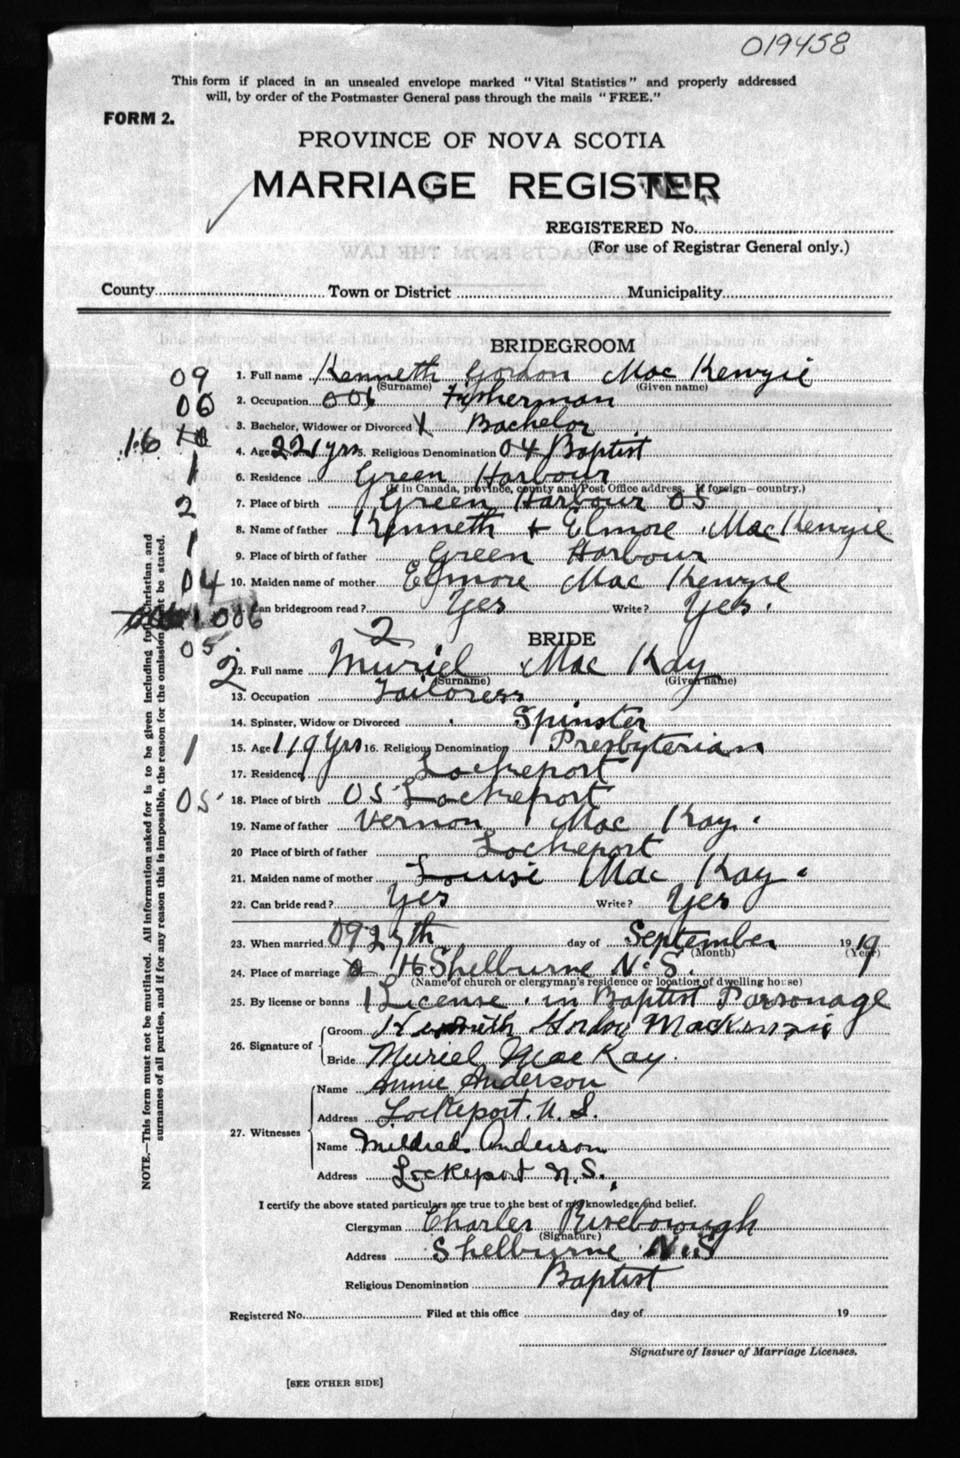 019458
This form if placed in an unsealed envelope marked "Vital Statistics" and properly addressed
will, by order of the Postmaster General pass through the mails "FREE."
FORM 2.
PROVINCE OF NOVA SCOTIA
MARRIAGE REGISTER
REGISTERED No.
(For use of Registrar General only.)
County Town or District Municipality
BRIDEGROOM
09 1. Full name Kenneth Gordon Mac Kenzie
(Surname) (Given name)
06 2. Occupation 006 Fisherman
3. Bachelor, Widower or Divorced Bachelor
16 4. Age 22 yrs 5. Religious Denomination 04 Baptist
1 6. Residence Green Harbour
(If in Canada, province, county and Post Office address. If foreign—country.)
2 7. Place of birth Green Harbour 05
8. Name of father Kenneth + Elmore MacKenzie
1 9. Place of birth of father Green Harbour
04 10. Maiden name of mother Elmore Mac Kenzie
006 Can bridegroom read? Yes Write? Yes.
2
05 BRIDE
2 12. Full name Muriel Mac Kay
(Surname) (Given name)
13. Occupation Tailoress
14. Spinster, Widow or Divorced Spinster
1 15. Age 19 Yrs 16. Religious Denomination Presbyterian
17. Residence Lockeport
05 18. Place of birth 05 Lockeport
19. Name of father Vernon Mac Kay.
20 Place of birth of father Lockeport
21. Maiden name of mother Louise Mac Kay
22. Can bride read? Yes Write? Yes
23. When married 09 27th day of September 19 19
(Month) (Year)
24. Place of marriage 16 Shelburne N.S.
(Name of church or clergyman's residence or location of dwelling house)
25. By license or banns 1 License. in Baptist Parsonage
26. Signature of Groom Kenneth Gordon MacKenzie
Bride Muriel MacKay.
27. Witnesses Name Annie Anderson
Address Lockeport. N.S.
Name Mildred Anderson
Address Lockeport N.S.
I certify the above stated particulars are true to the best of my knowledge and belief.
Clergyman Charles Roseborough
(Signature)
Address Shelburne N.S
Religious Denomination Baptist
Registered No. Filed at this office day of 19
Signature of Issuer of Marriage Licenses.
[SEE OTHER SIDE]
NOTE.—This form must not be mutilated. All information asked for is to be given including full Christian and
surnames of all parties, and if for any reason this is impossible, the reason for the omission must be stated.